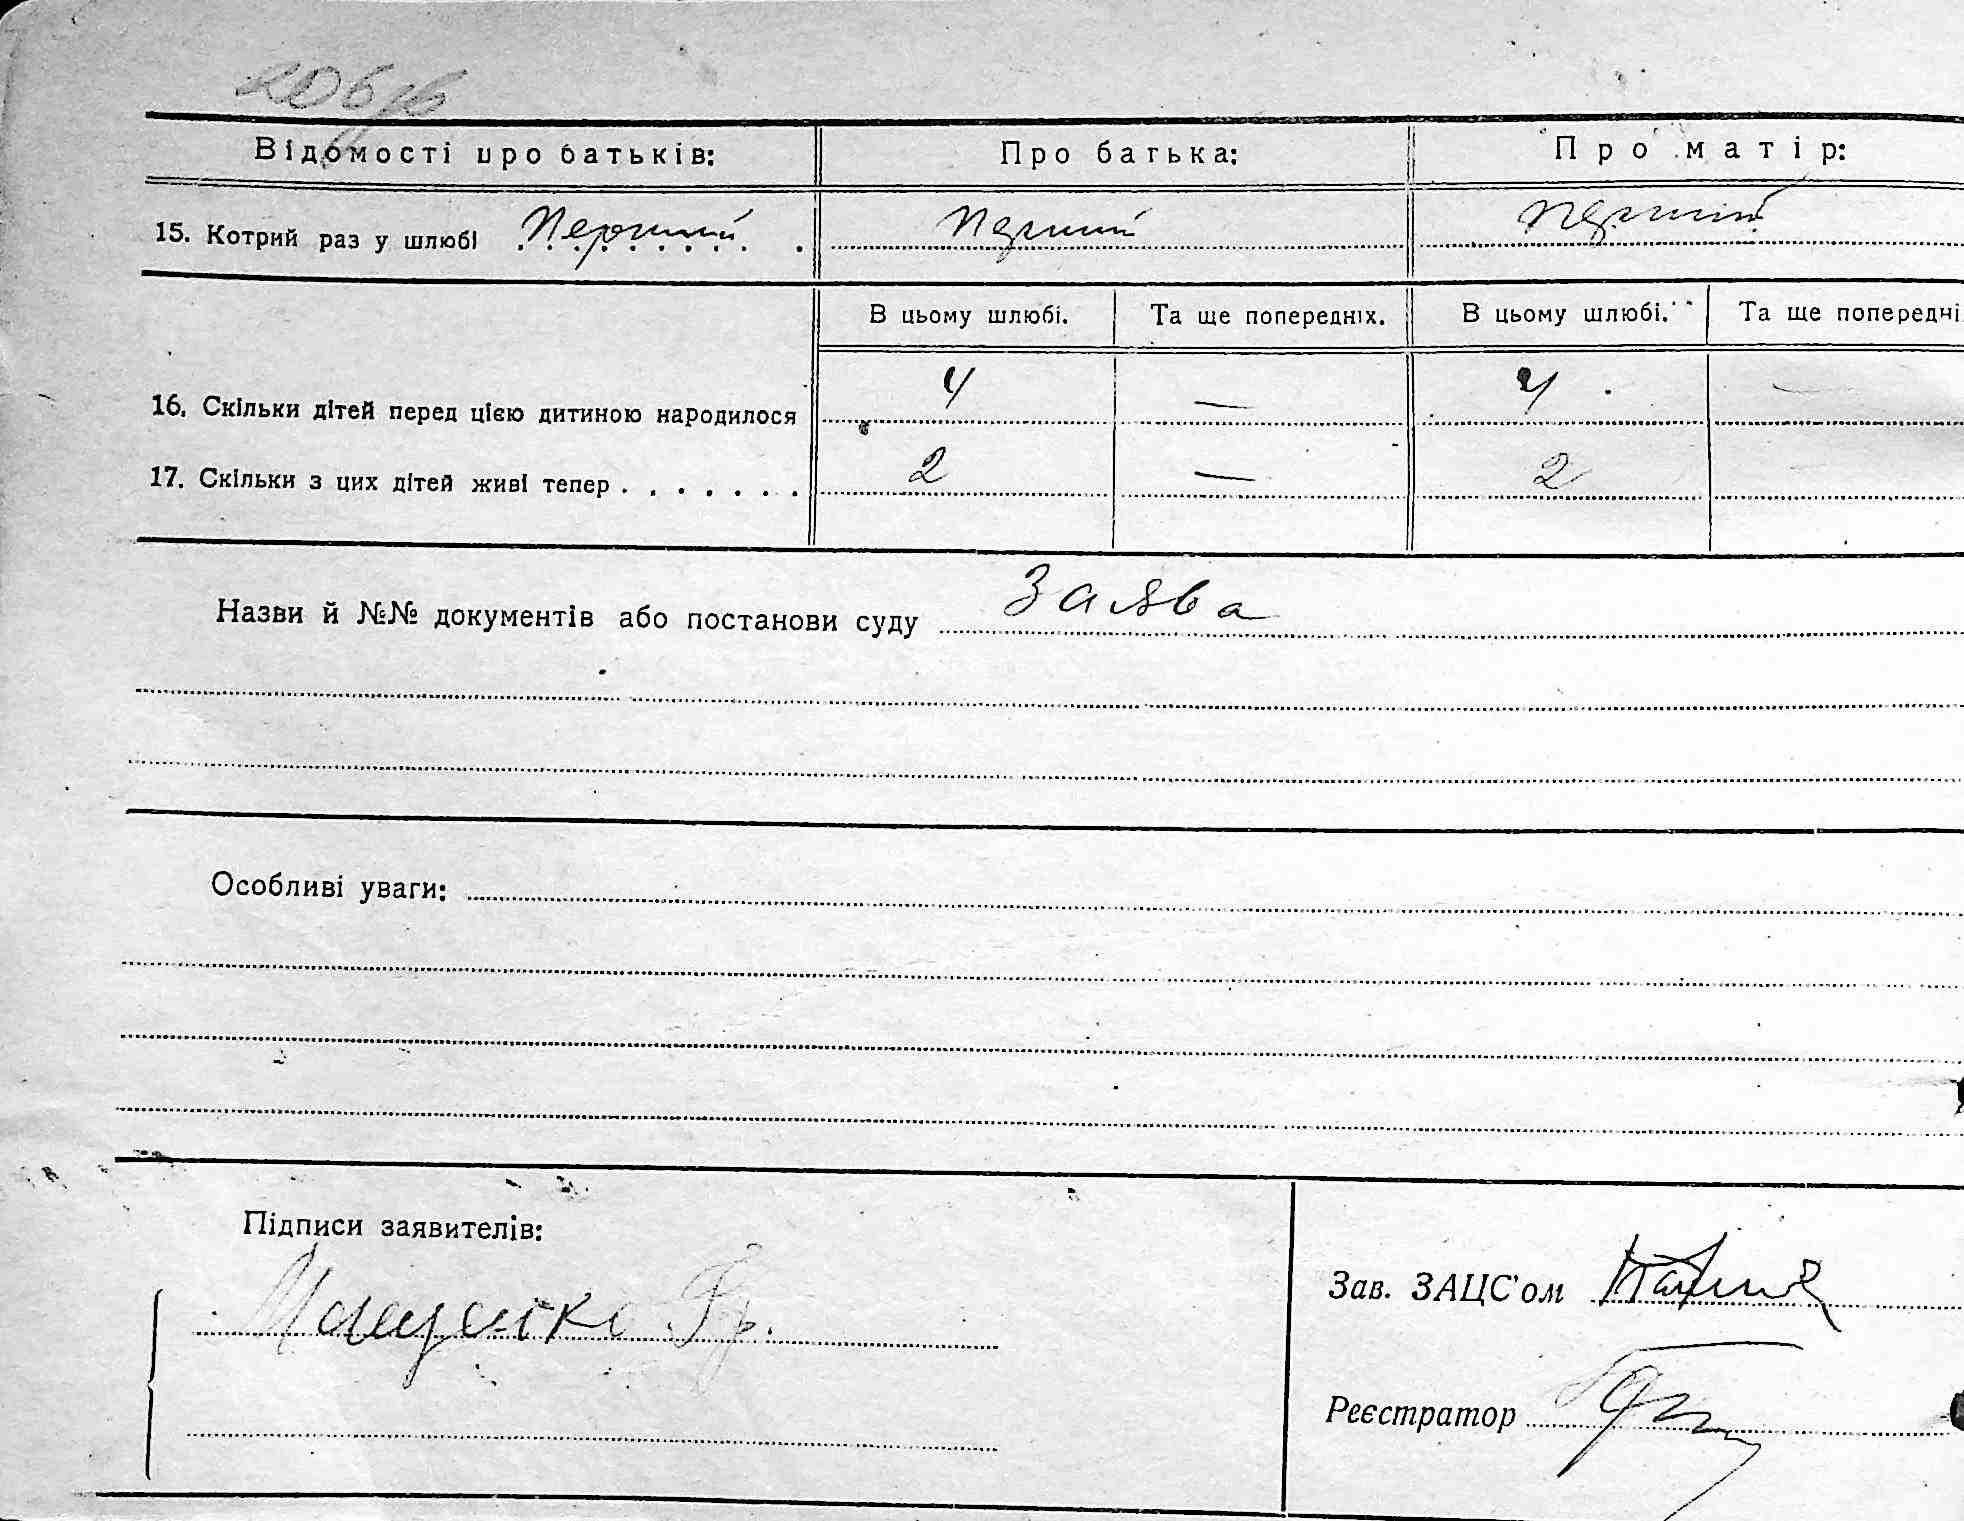 206
Відомості про батьків: Про батька: Про матір:
15. Котрий раз у шлюбі Перший Перший Перший
В цьому шлюбі. Та ще попередніх. В цьому шлюбі. Та ще попередні
16. Скільки дітей перед цією дитиною народилося 4 — 4 —
17. Скільки з цих дітей живі тепер . . . . . . . 2 — 2
Назви й №№ документів або постанови суду Заява
Особливі уваги:
Підписи заявителів:
Зав. ЗАЦС'ом
Гр.
Реєстратор